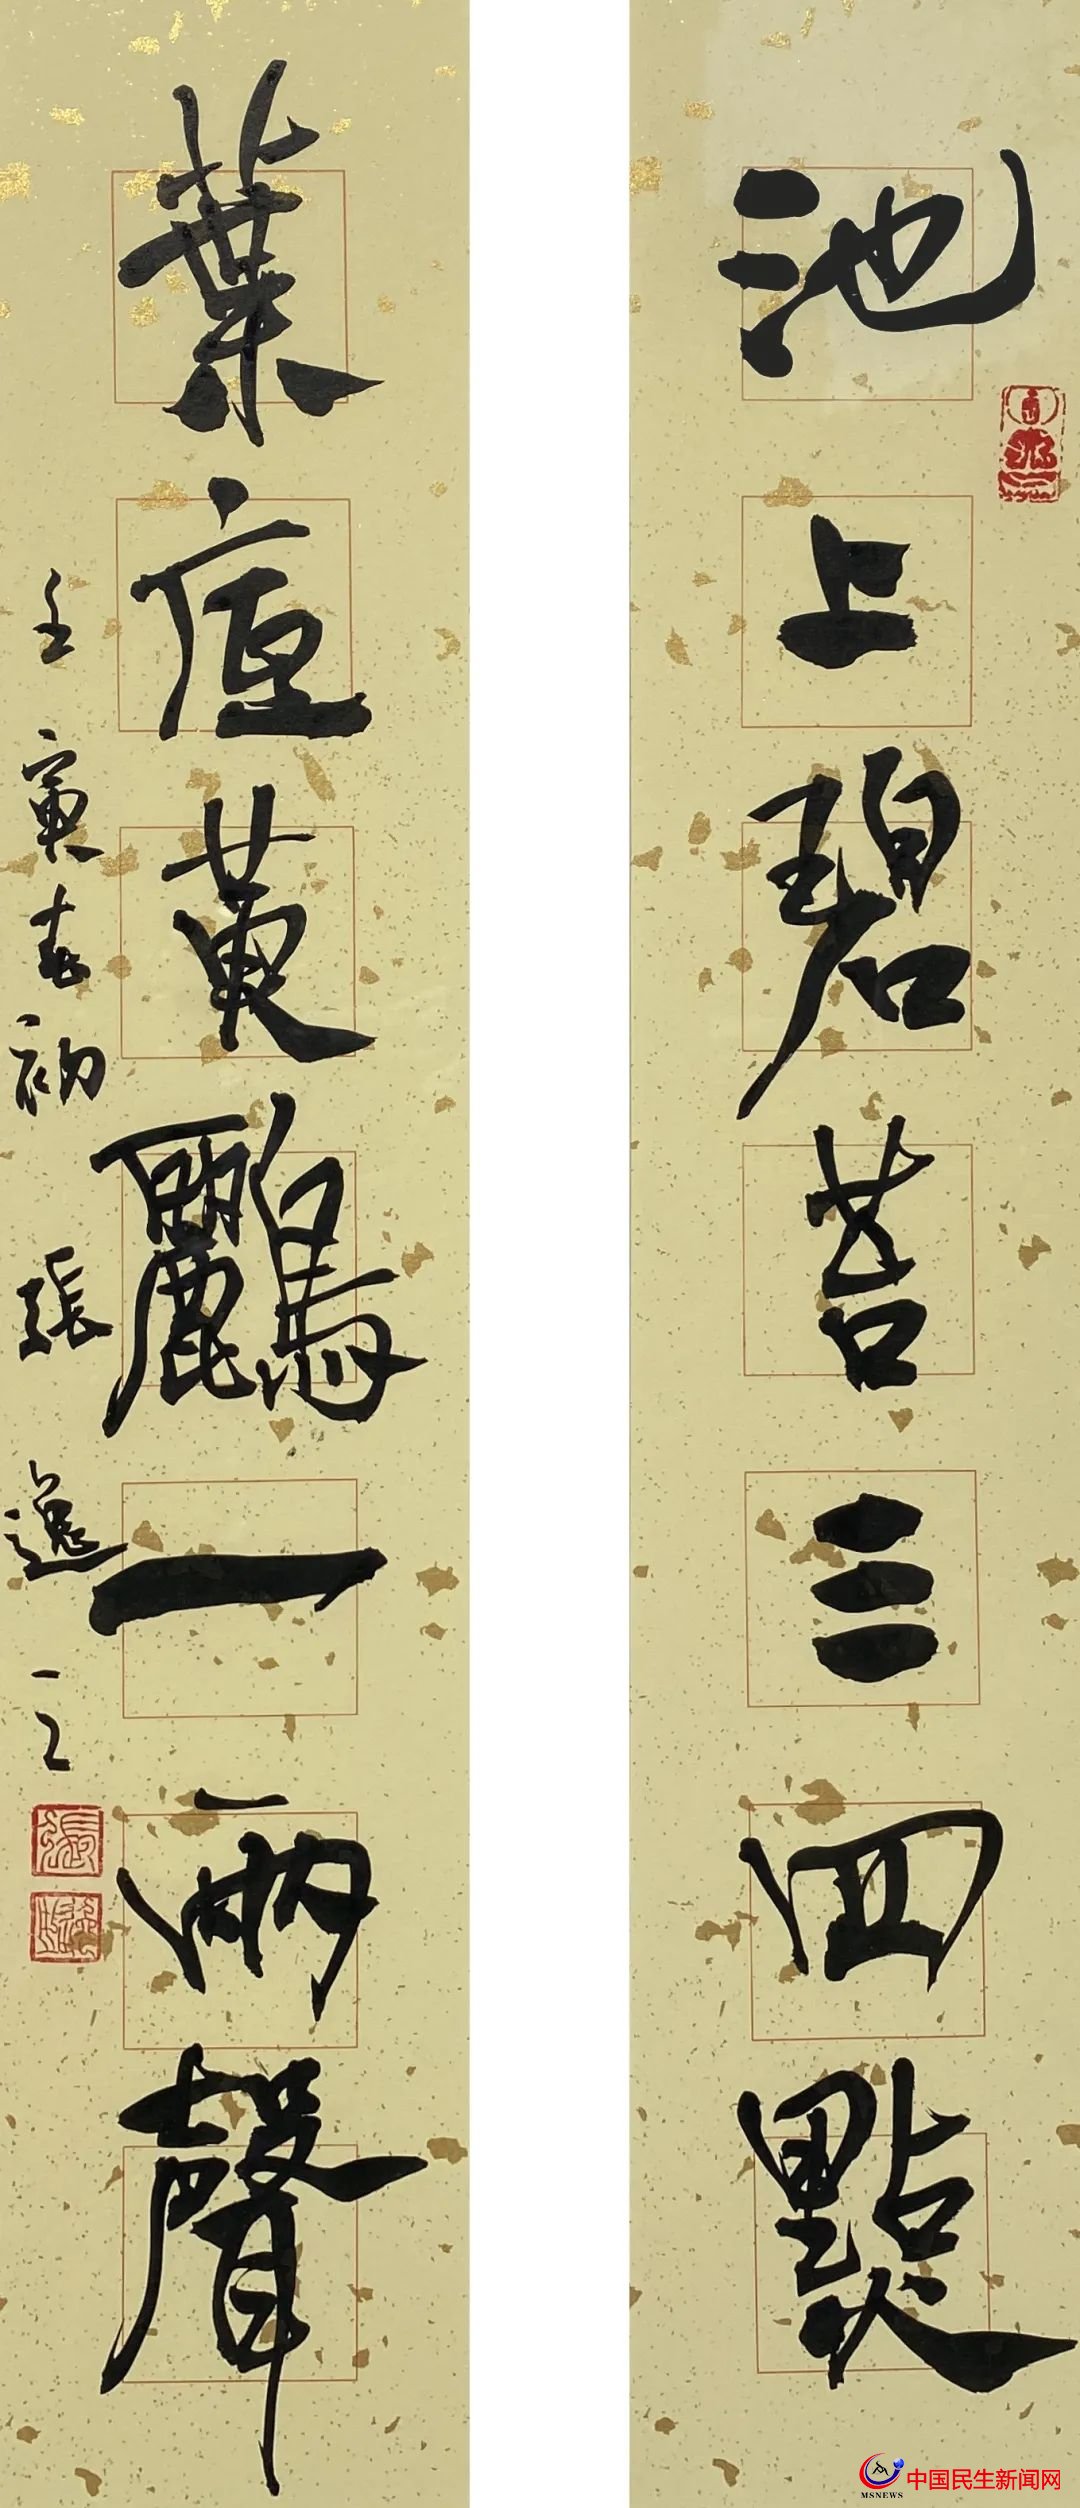 池上碧苔三四點
葉底黄鸝一兩聲
壬寅春初張逸之
張
中国民生新闻网
MSNEWS